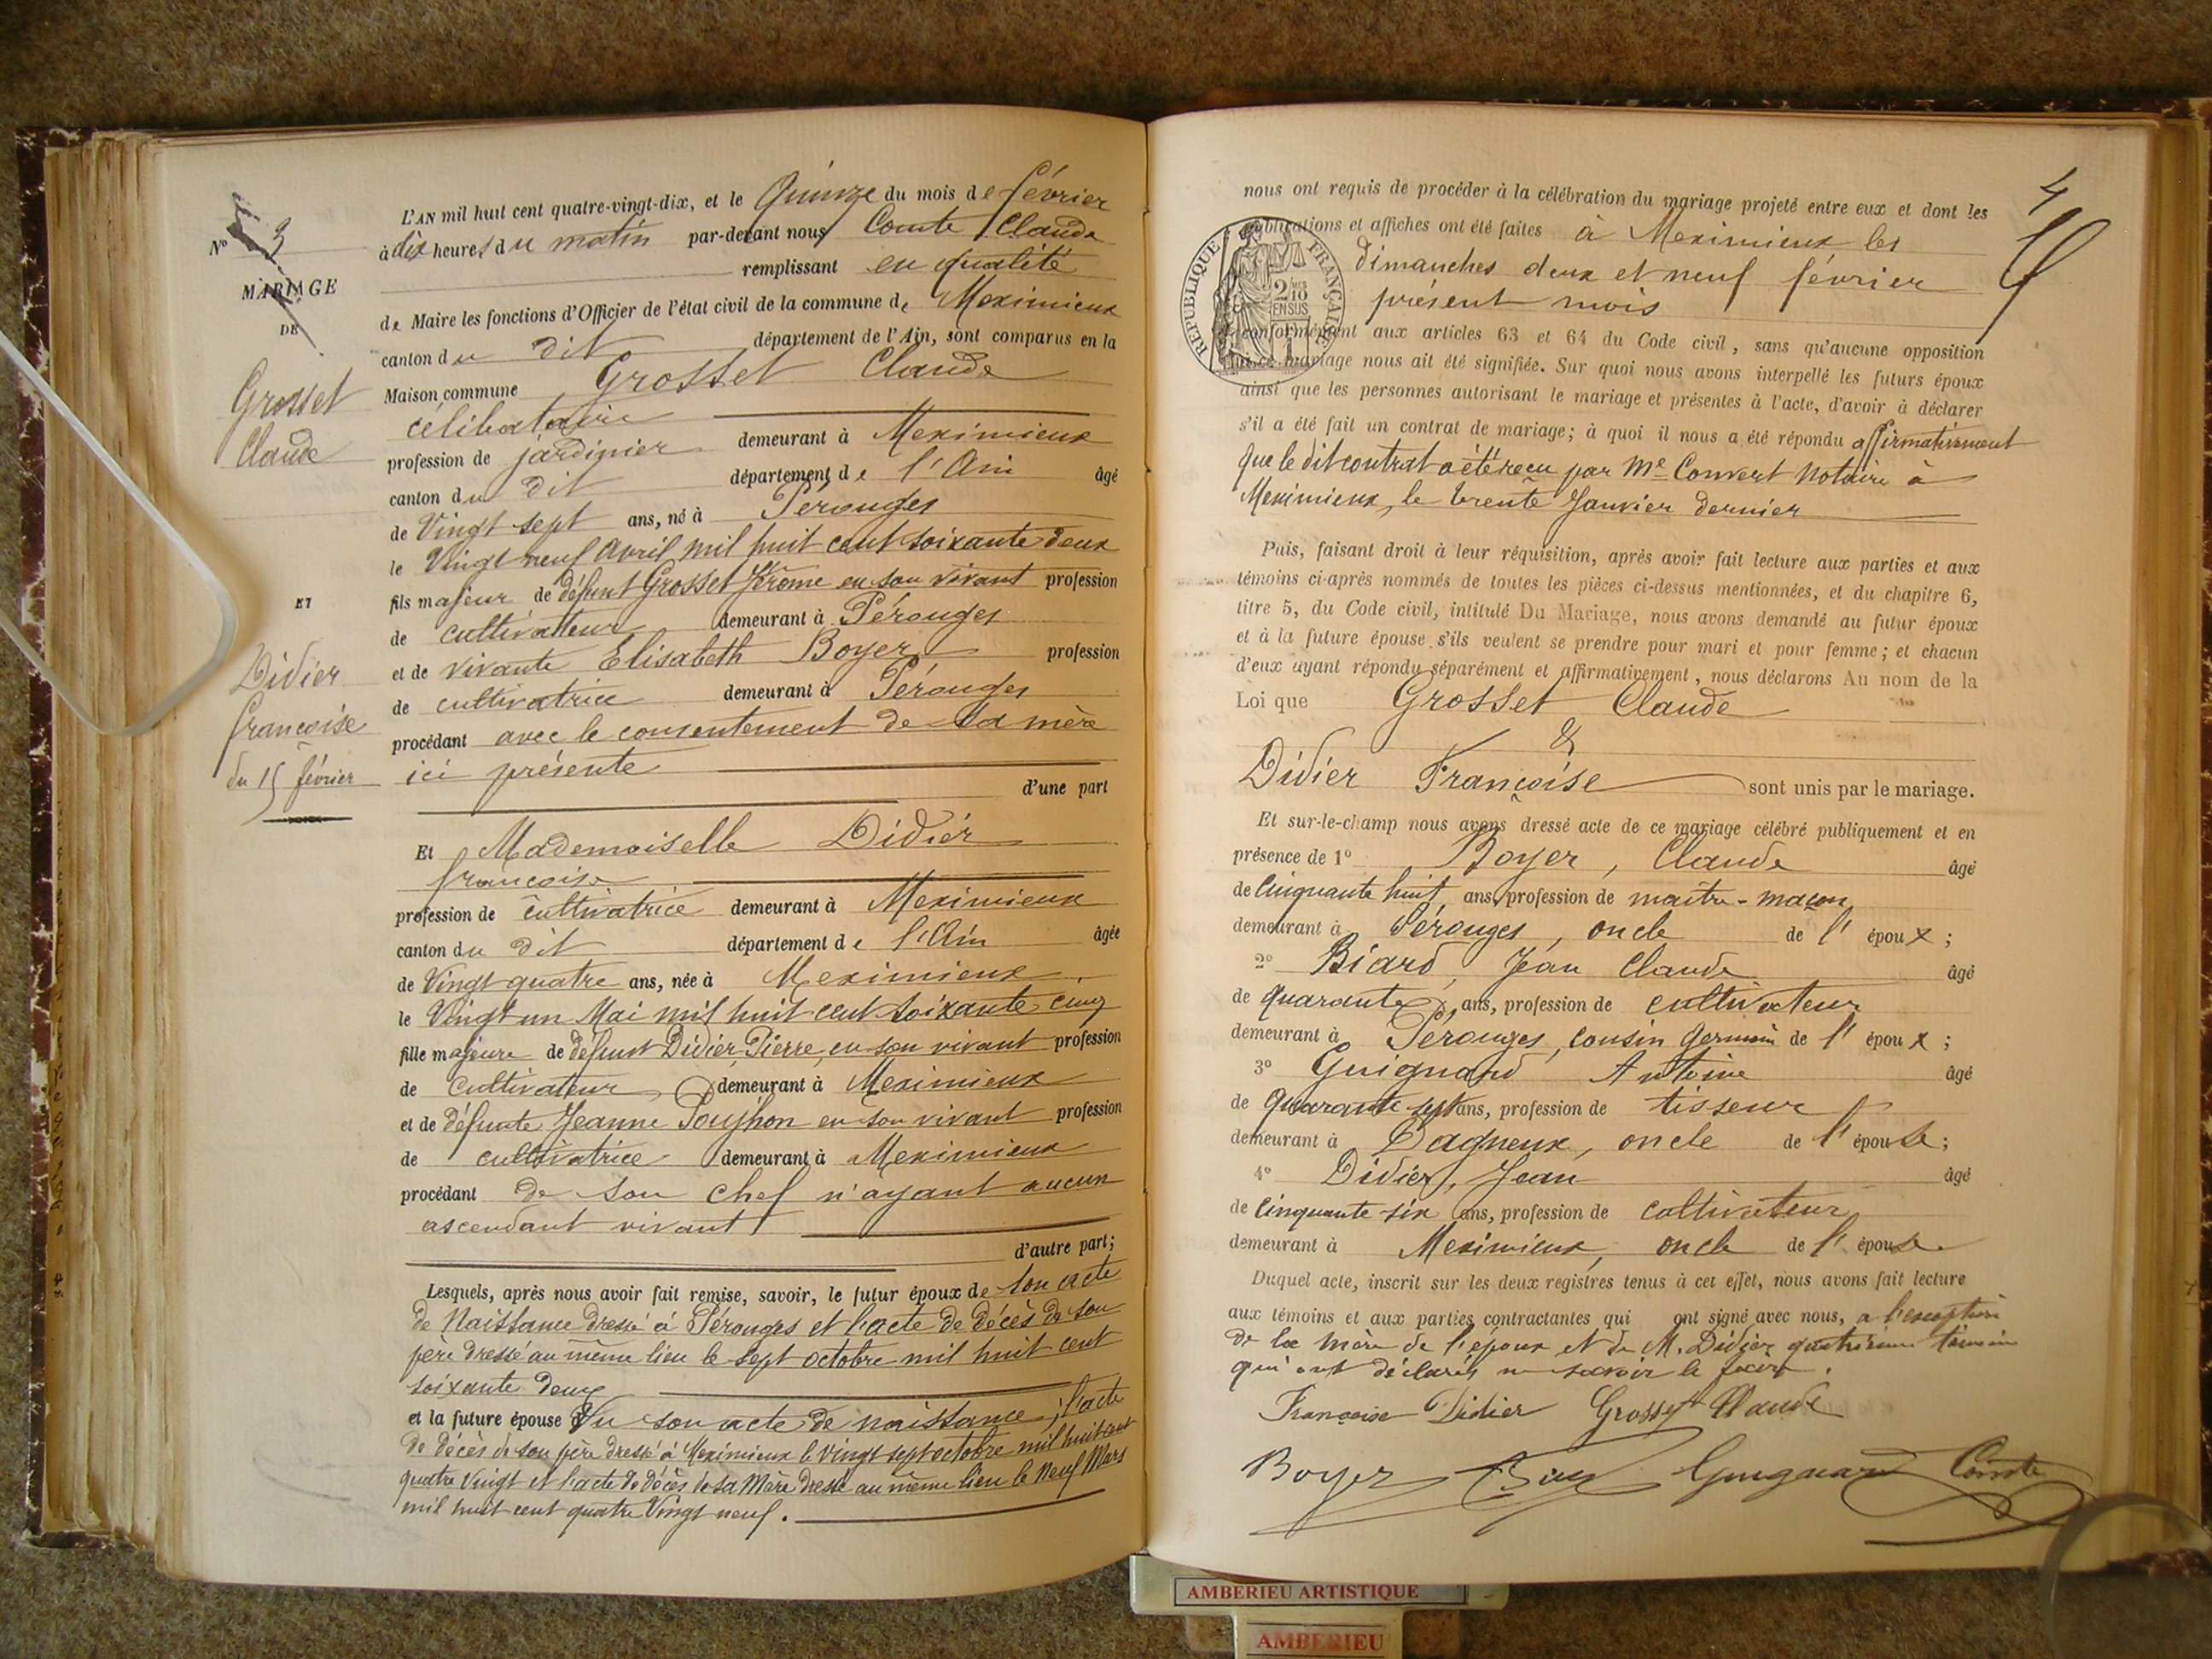 N° 3
MARIAGE
DE
Grosset
Claude
ET
Didier
françoise
du 15 février
L'AN mil huit cent quatre-vingt-dix, et le Quinze du mois de février
à dix heures du matin par-devant nous Comte Claude
remplissant en qualité
de Maire les fonctions d'Officier de l'état civil de la commune de Meximieux
canton du dit département de l'Ain, sont comparus en la
Maison commune Grosset Claude
célibataire
profession de jardinier demeurant à Meximieux
canton du dit département de l'Ain âgé
de Vingt sept ans, né à Pérouges
le Vingt neuf Avril mil huit cent soixante deux
fils majeur de défunt Grosset Jérome en son vivant profession
de cultivateur demeurant à Pérouges
et de vivante Elisabeth Boyer profession
de cultivatrice demeurant à Pérouges
procédant avec le consentement de sa mère
ici présente
d'une part
Et Mademoiselle Didier
françoise
profession de cultivatrice demeurant à Meximieux
canton du dit département de l'Ain âgée
de Vingt quatre ans, née à Meximieux
le Vingt un Mai mil huit cent soixante cinq
fille majeure de défunt Didier Pierre, en son vivant profession
de cultivateur demeurant à Meximieux
et de défunte Jeanne en son vivant profession
de cultivatrice demeurant à Meximieux
procédant de son chef n'ayant aucun
ascendant vivant
d'autre part;
Lesquels, après nous avoir fait remise, savoir, le futur époux de son acte
de Naissance dressé à Pérouges et l'acte de décès de son
père dressé au même lieu le sept octobre mil huit cent
soixante deux
et la future épouse Vu son acte de naissance ; l'acte
de décès de son père dressé à Meximieux le vingt sept octobre mil huit cent
quatre Vingt et l'acte de décès de sa Mère dressé au même lieu le Neuf Mars
mil huit cent quatre Vingt neuf.
4
nous ont requis de procéder à la célébration du mariage projeté entre eux et dont les
publications et affiches ont été faites à Meximieux les
dimanches deux et neuf février
présent mois
RÉPUBLIQUE FRANÇAISE
2/10
EN SUS
conformément aux articles 63 et 64 du Code civil, sans qu'aucune opposition
à ce mariage nous ait été signifiée. Sur quoi nous avons interpellé les futurs époux
ainsi que les personnes autorisant le mariage et présentes à l'acte, d'avoir à déclarer
s'il a été fait un contrat de mariage; à quoi il nous a été répondu affirmativement
que le dit contrat a été reçu par Me Convert Notaire à
Meximieux, le trente Janvier dernier
Puis, faisant droit à leur réquisition, après avoir fait lecture aux parties et aux
témoins ci-après nommés de toutes les pièces ci-dessus mentionnées, et du chapitre 6,
titre 5, du Code civil, intitulé Du Mariage, nous avons demandé au futur époux
et à la future épouse s'ils veulent se prendre pour mari et pour femme; et chacun
d'eux ayant répondu séparément et affirmativement, nous déclarons Au nom de la
Loi que Grosset Claude
&
Didier Françoise sont unis par le mariage.
Et sur-le-champ nous avons dressé acte de ce mariage célébré publiquement et en
présence de 1° Boyer, Claude âgé
de Cinquante huit ans, profession de maître-maçon
demeurant à Pérouges, oncle de l'époux;
2° Biard, Jean Claude âgé
de quarante ans, profession de cultivateur
demeurant à Pérouges, cousin germain de l'époux;
3° Guignard Antoine âgé
de Quarante sept ans, profession de tisseur
demeurant à Dagneux, oncle de l'épouse;
4° Didier, Jean âgé
de Cinquante six ans, profession de cultivateur
demeurant à Meximieux, oncle de l'épouse.
Duquel acte, inscrit sur les deux registres tenus à cet effet, nous avons fait lecture
aux témoins et aux parties contractantes qui ont signé avec nous, a l'exception
de la mère de l'époux et de M. Didier quatrième témoin
qui ont déclarés ne savoir le faire.
Françoise Didier Grosset Claude
Boyer Guignard Comte
AMBERIEU ARTISTIQUE
AMBERIEU